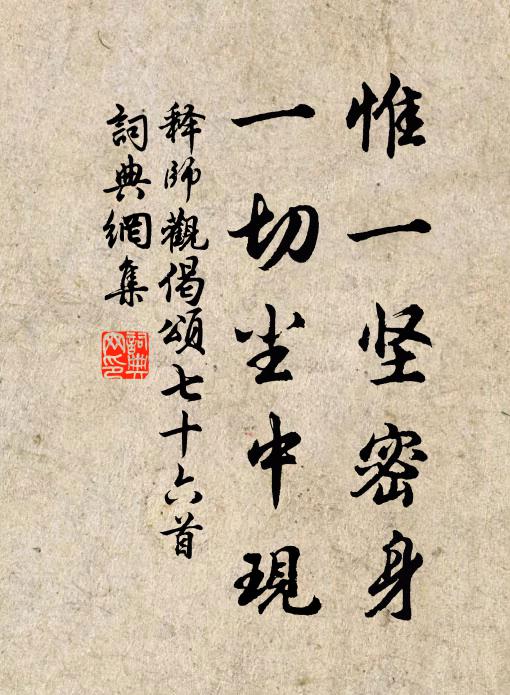 惟一坚密身
一切尘中現
释師觀偈頌七十六首
詞典網集
詞典网印